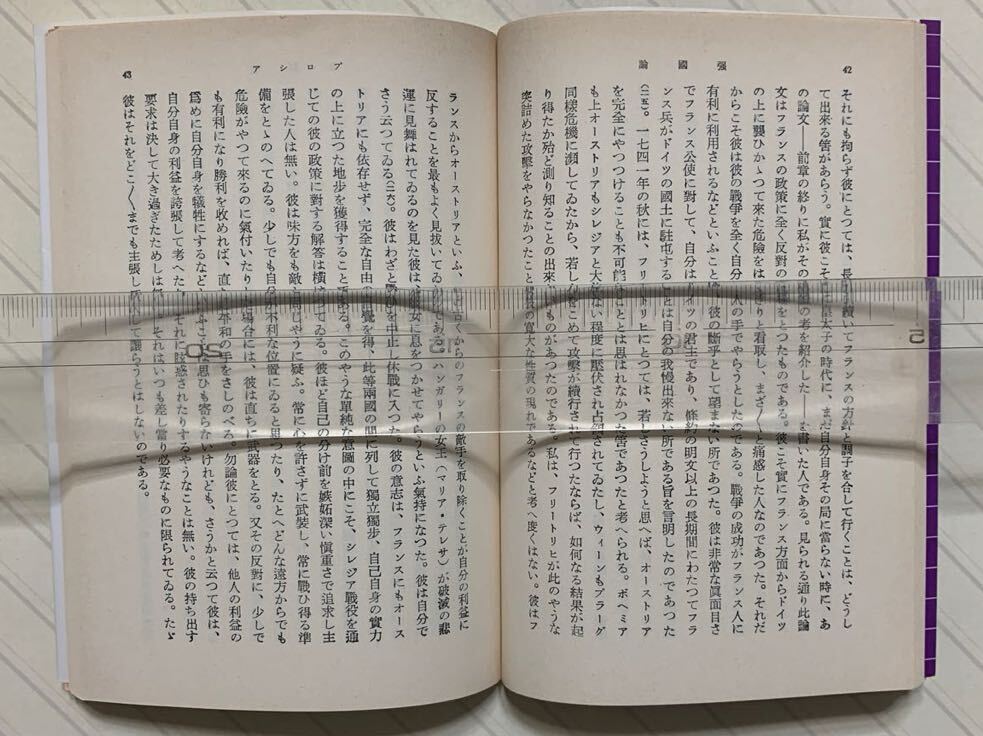 42
論國强
それにも拘らず彼にとつては、長期に續いてフランスの方針と調子を合して行くことは、どうし
て出來る筈があらう。實に彼こそは皇太子の時代に、まだ自分自身その局に當らない時に、あ
の論文――前章の終りに私がその思想の考を紹介した――を書いた人である。見られる通り此論
文はフランスの政策に全く反對の態度をとつたものである。彼こそ實にフランス方面からドイツ
の上に襲ひかゝつて來た危險をはつきりと看取し、まざ〳〵と痛感した人なのであつた。それだ
からこそ彼は彼の戰爭を全く自分一人の手でやらうとしたのである。戰爭の成功がフランス人に
有利に利用されるなどといふことは、彼の斷乎として望まない所であつた。彼は非常な眞面目さ
でフランス公使に對して、自分はドイツの君主であり、條約の明文以上の長期間にわたつてフラ
ンス兵がドイツの國土に駐屯することは自分の我慢出來ない所である旨を言明したのであつた
(二五)。一七四一年の秋には、フリートリヒにとつては、若しさうしようと思へば、オーストリア
を完全にやつつけることも不可能なことは思はれなかつた筈であつたと考へられる。ボヘミア
も上オーストリアもシレジアと大差ない程度に壓伏され占領されてゐたし、ウィーンもプラーグ
同樣危機に瀕してゐたから、若し力をこめて攻擊が續行されて行つたならば、如何なる結果が起
り得たか殆ど測り知ることの出來ないものがあつたのである。私は、フリートリヒが此のやうな
突詰めた攻擊をやらなかつたことは彼の寬大な性質の現れであるなどと考へ度くはない。彼はフ
43
アシロプ
ランスからオーストリアといふ、
古くからのフランスの敵手を取り除くことが自分の利益に
反することを最もよく見拔いてゐたのである。ハンガリーの女王(マリア・テレサ)が破滅の悲
運に見舞はれてゐるのを見た彼は彼女に息をつかせてやらうといふ氣持になつた。彼は自分で
さう云つてゐる(二六)。彼はわざと戰爭を中止し休戰に入つた。彼の意志は、フランスにもオース
トリアにも依存せず、完全な自由の自覺を得、此等兩國の間に列して獨立獨步、自己自身の實力
の上に立つた地步を獲得することである。このやうな單純な意圖の中にこそ、シレジア戰役を通
じての彼の政策に對する解答は橫はつてゐる。彼ほど自己の分け前を嫉妬深い愼重さで追求し主
張した人は無い。彼は味方をも敵と同じやうに疑ふ。常に心を許さずに武裝し、常に戰ひ得る準
備をとゝのへてゐる。少しでも自分が不利な位置にゐると思つたり、たとへどんな遠方からでも
危險がやつて來るのに氣付いたりした場合には、彼は直ちに武器をとる。又その反對に、少しで
も有利になり勝利を收めれば、直ぐ平和の手をさしのべる。勿論彼にとつては、他人の利益の
爲めに自分自身を犧牲にするなどいふことは思ひも寄らないけれども、さうかと云つて彼は、
自分自身の利益を誇張して考へたり、それに眩惑されたりするやうなことは無い。彼の持ち出す
要求は決して大き過ぎたためしは無く、それはいつも差し當り必要なものに限られてゐる。たゞ
彼はそれをどこ〳〵までも主張し
て讓らうとはしないのである。
5
15
20